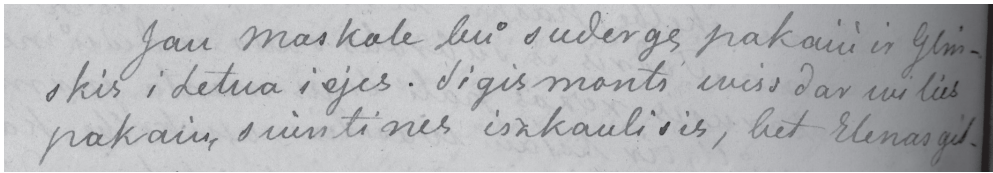 Jau Maskole bů sudergę pakaių ir Glin-
skis i Letua iėjes. Sigismonts wiss dar wilies
pakaiu, suintines iszkaulisis, bet Elenas gil-